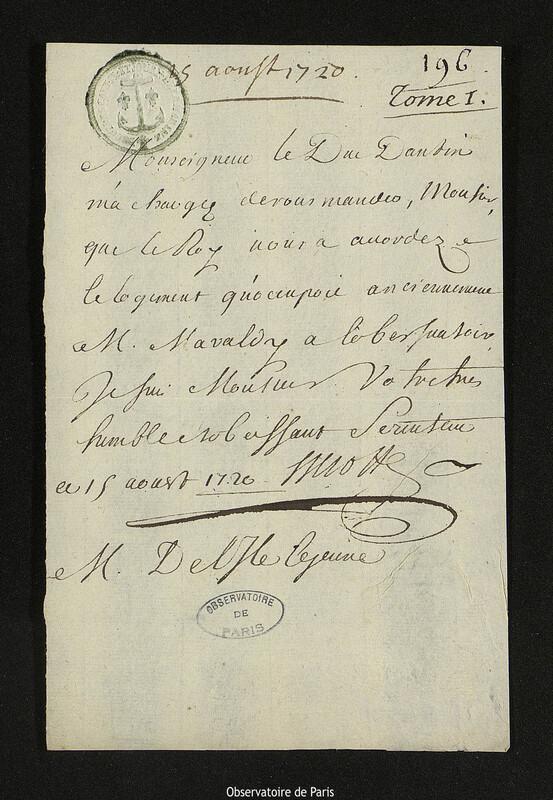 15 aoust 1720.
196
Tome I.
Monseigneur le Duc Dantin
m'a chargé de vous mander, Monsieur,
que le Roy vous a accordez
le logement qu'occupoit anciennement
M. Maraldy a l'observatoire,
Je suis Monsieur Votre tres
humble et obeissant Serviteur
ce 15 aoust 1720
M. De l'Isle le jeune
OBSERVATOIRE
DE
PARIS
Observatoire de Paris